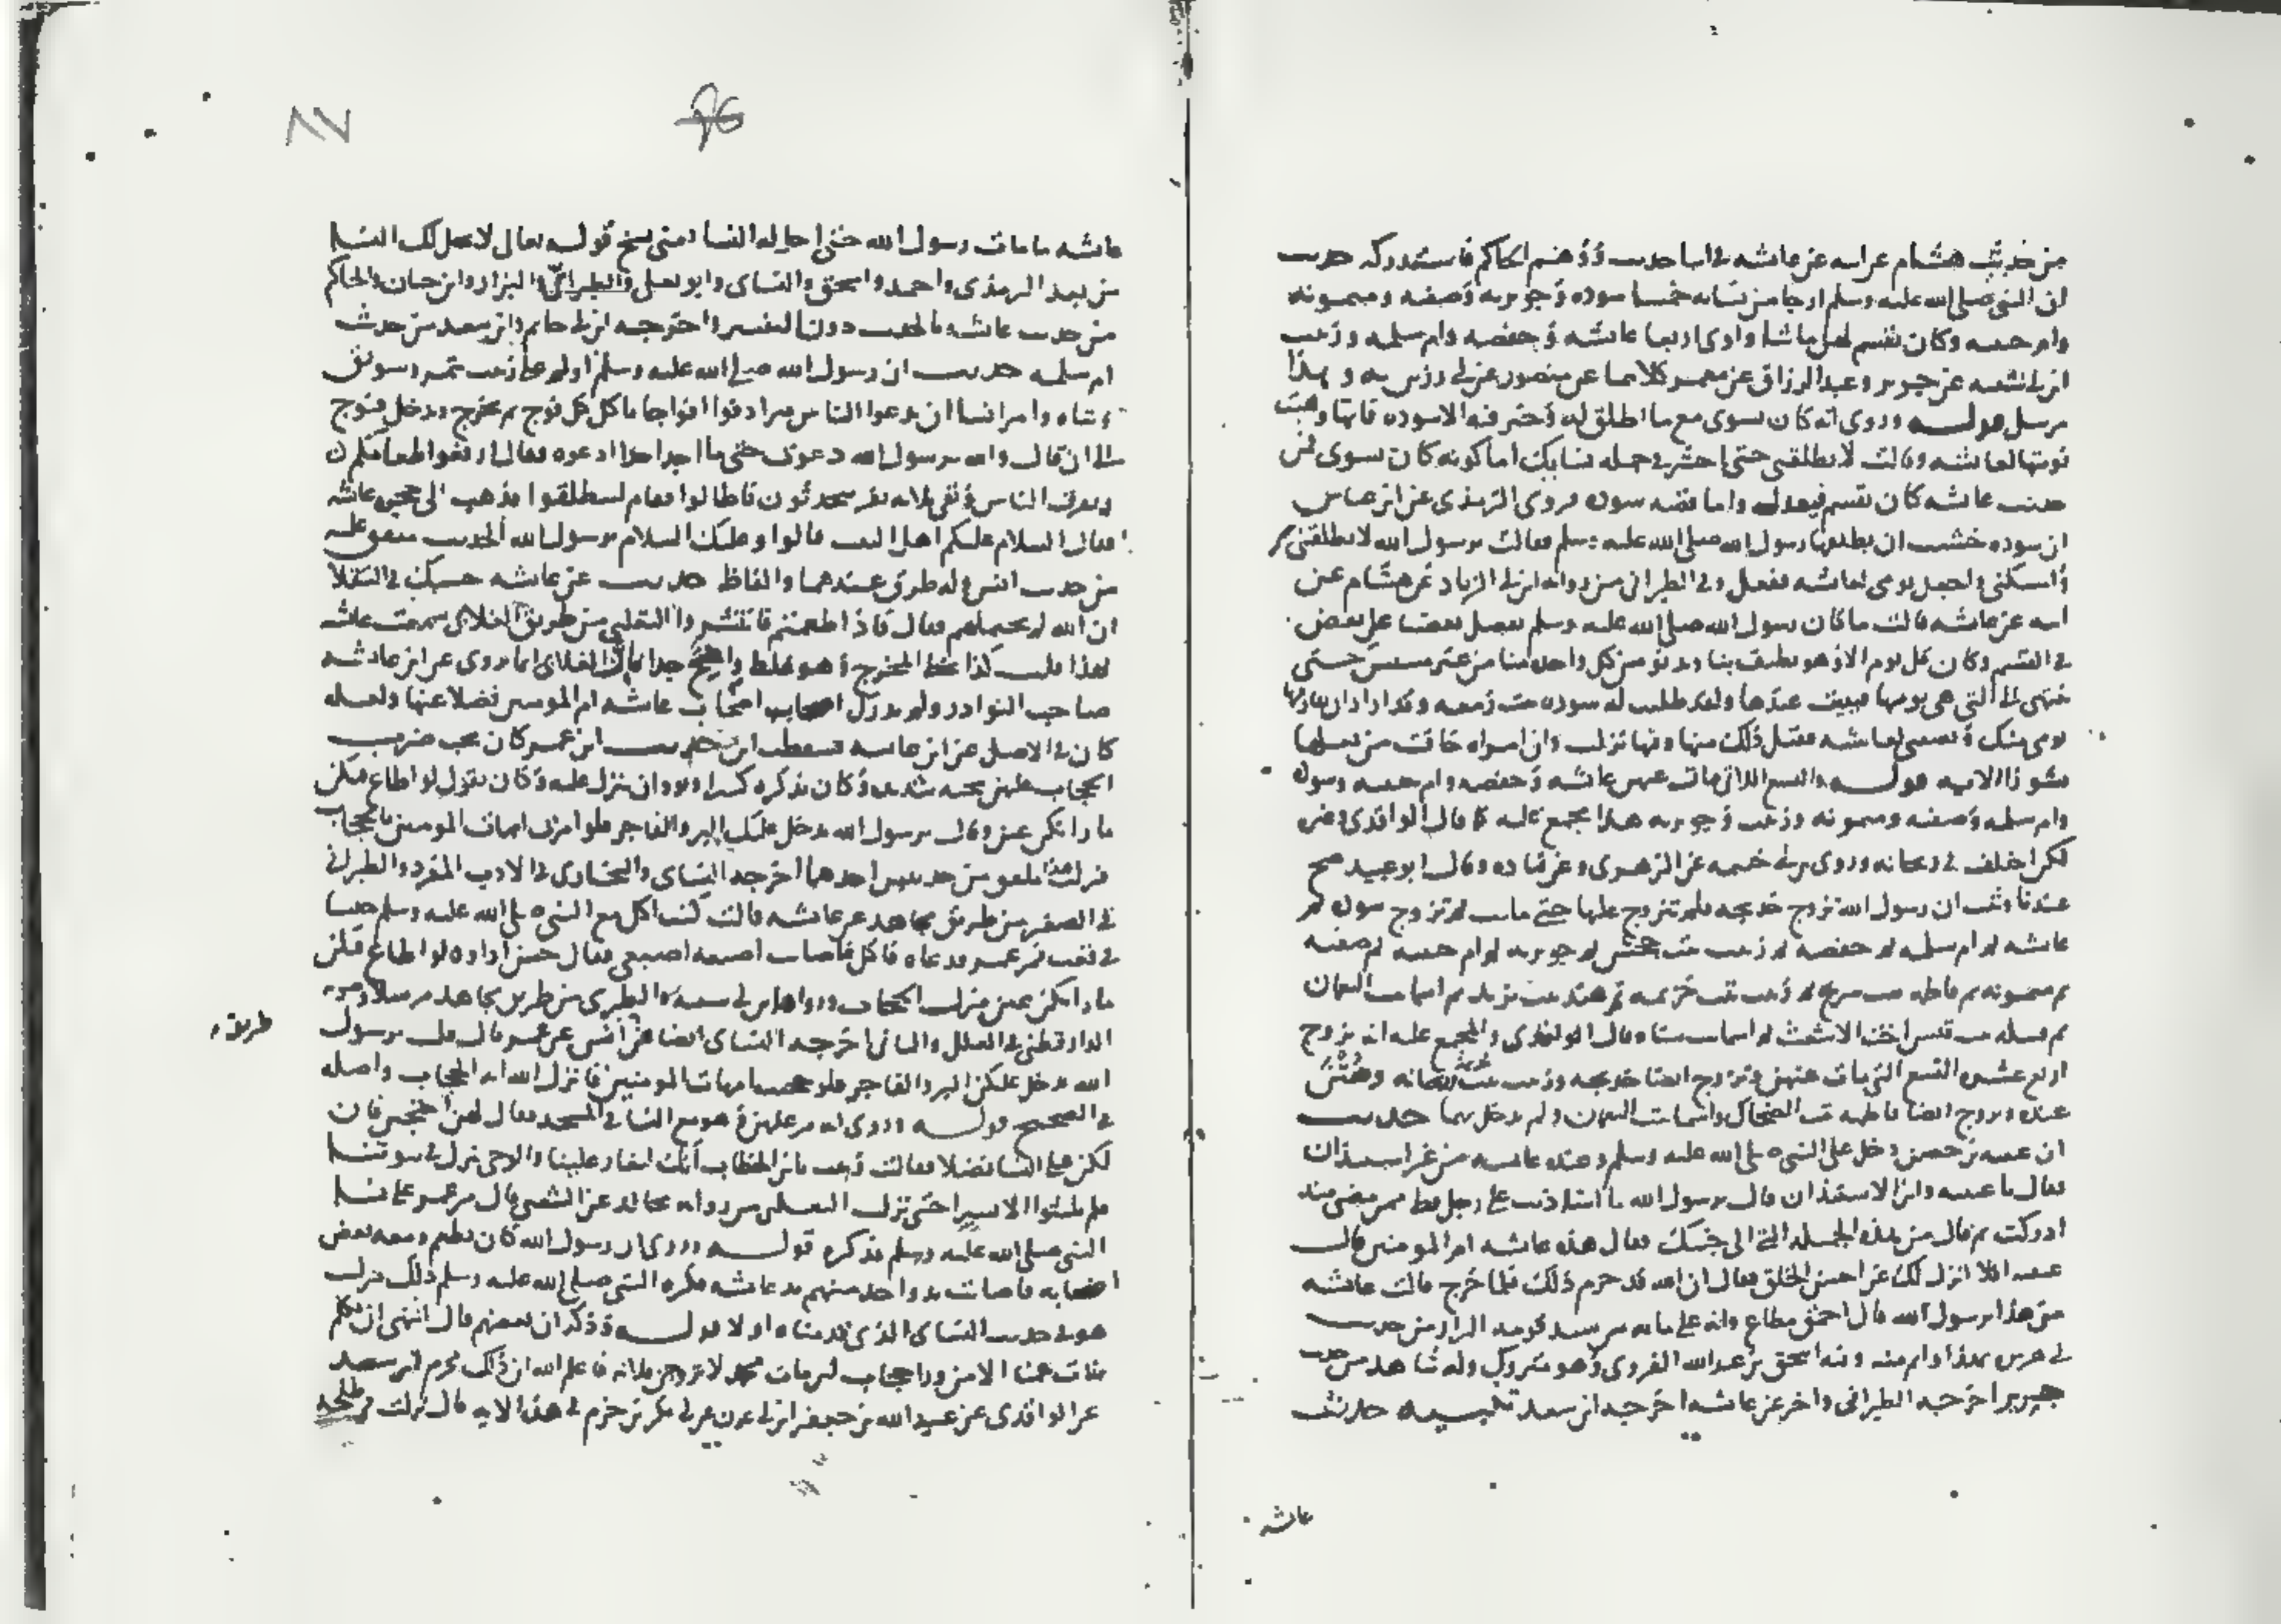 من حديث هشام عن ابيه عن عائشة في اثنا حديث ووهم الحاكم فاستدركه حديث
ان النبي صلى الله عليه وسلم ارجا من نسايه خمسا سوده وجويريه وصفيه وميمونه
وام حبيبه وكان يقسم لهن ما شا واوى اربعا عائشه وحفصه وام سلمه وزينب
ابن ابي شيبه عن جرير وعبد الرزاق عن معمر كلاهما عن منصور عن ابي رزين به وهذا
مرسل قوله وروى انه كان يسوى مع ما اطلق له وخير فيه الا سوده فانها وهبت
نوبتها لعائشه وقالت لا تطلقني حتى احشر في جمله نسايك اما كونه كان يسوى فمن
حديث عائشه كان يقسم فيعدل واما قصه سوده فروى الترمذي عن ابن عباس
ان سوده خشيت ان يطلقها رسول الله صلى الله عليه وسلم فقالت يرسول الله لا تطلقني
وامسكني واجعل يومى لعائشه ففعل وفي الطبراني من روايه ابن ابي الزناد عن هشام عن
ابيه عن عائشه قالت ما كان رسول الله صلى الله عليه وسلم يفضل بعضنا على بعض
في القسم وكان كل يوم الا وهو يطيف بنا ويدنو من كل واحده منا من غير مسيس حتى
ينتهى الى التي هى يومها فيبيت عندها ولقد طلب له سوده بنت زمعه وقد اراد ان يفارقها
يومى منك ونصيبى لعائشه فقبل ذلك منها وفيها نزلت وان امراه خافت من بعلها
نشوزا الايه قوله والتسع اللاتي مات عنهن عائشه وحفصه وام حبيبه وسوده
وام سلمه وصفيه وميمونه وزينب وجويريه هذا مجمع عليه كما قال الواقدي وغيره
لكن اختلف في ريحانه وروى ابن ابي خيثمه عن الزهرى وعن قتاده وقال ابو عبيد صح
عندنا وثبت ان رسول الله تزوج خديجه فلم يتزوج عليها حتى ماتت ثم تزوج سوده ثم
عائشه ثم ام سلمه ثم حفصه ثم زينب بنت جحش ثم جويريه ثم ام حبيبه ثم صفيه
ثم ميمونه ثم فاطمه بنت سريح ثم زينب بنت خزيمه ثم هند بنت يزيد ثم اسما بنت النعمان
ثم قتيله بنت قيس اخت الاشعث ثم اسما بنت سنا وقال الواقدى والمجمع عليه انه تزوج
اربع عشره التسع التي مات عنهن وتزوج ايضا خديجه وزينب بنت خزيمه وريحانه
عنده وتزوج ايضا فاطمه بنت الضحاك واسما بنت النعمان ولم يدخل بهما حديث
ان عيينه بن حصن دخل على النبي صلى الله عليه وسلم وعنده عائشه من غير استيذان
فقال يا عيينه واين الاستئذان قال يرسول الله ما استاذنت على رجل قط ممن مضى منذ
ادركت ثم قال من هذه الجميله التي الى جنبك فقال هذه عائشه ام المومنين قال
عيينه افلا انزل لك عن احسن الخلق فقال ان الله قد حرم ذلك فلما خرج قالت عائشه
من هذا يرسول الله قال احمق مطاع وانه على ما ترين سيد قومه البزار من حديث
ابي هريره بهذا واتم منه وفيه اسحق بن عبد الله الفروى وهو متروك وله شاهد من حديث
جرير اخرجه الطبراني واخر عن عائشه اخرجه ابن سعد تنبيه حديث
عائشه
٨٧
عائشه ما مات رسول الله حتى احل له النسا يعنى نسخ قوله تعالى لا يحل لك النسا
من بعد الترمذى واحمد واسحق والنساى وابو يعلى والطبراني والبزار وابن حبان والحاكم
من حديث عائشه بالحديث دون التفسير واخرجه ابن ابي حاتم وابن سعد من حديث
ام سلمه حديث ان رسول الله صلى الله عليه وسلم اولم على زينب بتمر وسويق
وشاه وامر انسا ان يدعوا الناس فترادفوا افواجا ياكل كل فوج ثم يخرج ويدخل فوج
الى ان قال والله يرسول الله دعوت حتى ما اجد احدا ادعوه فقال ارفعوا طعامكم
وتفرق الناس وبقى ثلاثه نفر يتحدثون فاطالوا فقام لينطلقوا فذهب الى حجره عائشه
فقال السلام عليكم اهل البيت قالوا وعليك السلام يرسول الله الحديث متفق عليه
من حديث انس وله طرق عندهما والفاظ حديث عن عائشه حسبك في الثقلا
ان الله لم يحتملهم فقال فاذا طعمتم فانتشروا الثعلبي من طريق الغلابى سمعت عائشه
بهذا قلت كذا بخط المخرج وهو غلط واضح جدا فان الغلابى انما يروى عن ابن عائشه
صاحب النوادر ولم يدرك اصحاب اصحاب عائشه ام المومنين فضلا عنها ولعله
كان في الاصل عن ابن عائشه فسقطت ابن حديث ان عمر كان يحب ضرب
الحجاب عليهن محبه شديده وكان يذكره كثيرا ويود ان ينزل عليه وكان يقول لو اطاع فيكن
ما راتكن عين وقال يرسول الله يدخل عليك البر والفاجر فلو امرت امهات المومنين بالحجاب
فنزلت هذا ملفق من حديثين احدهما اخرجه النساى والبخارى في الادب المفرد والطبراني
في الصغير من طريق مجاهد عن عائشه قالت كنت اكل مع النبي صلى الله عليه وسلم حيسا
في قعب فمر عمر فدعاه فاكل فاصابت اصبعه اصبعي فقال حس او اوه لو اطاع فيكن
ما راتكن عين فنزلت الحجاب ورواه ابن ابي شيبه والطبرى من طريق مجاهد مرسلا وصوبه
طريق
الدارقطني في العلل والثاني اخرجه النساى ايضا عن انس عن عمر قال قلت يرسول
الله يدخل عليكن البر والفاجر فلو حجبت امهات المومنين فانزل الله ايه الحجاب واصله
في الصحيح قوله وروى انه مر عليهن وهو مع النسا في المسجد فقال لهن احتجبن فان
لكن على النسا فضلا فقالت زينب يابن الخطاب انك لتغار علينا والوحى ينزل في بيوتنا
فلم يلبثوا الا يسيرا حتى نزلت الثعلبى من روايه مجالد عن الشعبي قال مر عمر على نسا
النبي صلى الله عليه وسلم فذكره قوله وروى ان رسول الله كان يطعم ومعه بعض
اصحابه فاصابت يد واحد منهم يد عائشه فكره النبي صلى الله عليه وسلم ذلك فنزلت
هو في حديث النساى الذى قدمناه اولا قوله وذكر ان بعضهم قال اننهى ان نكلم
بنات عمنا الا من ورا حجاب لين مات محمد لاتزوجن فلانه فاعلم الله ان ذلك محرم ابن سعد
عن الواقدى عن عبد الله بن جعفر عن ابن ابي عون عن ابي بكر بن حزم في هذا الايه قال نزلت في طلحه